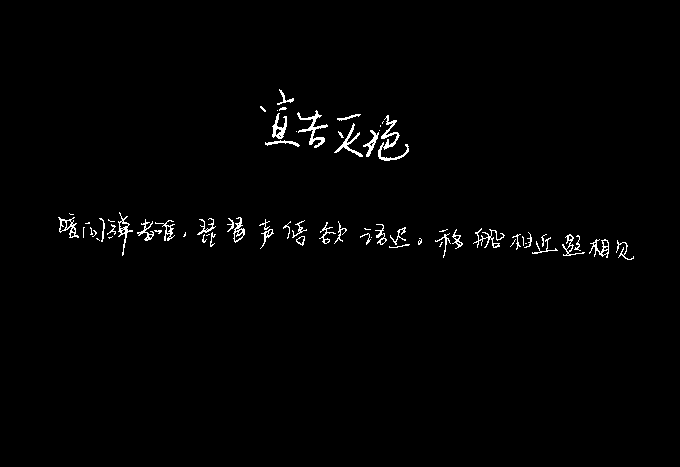 宣告灭绝
暗问弹者谁，琵琶声停欲语迟。移船相近邀相见